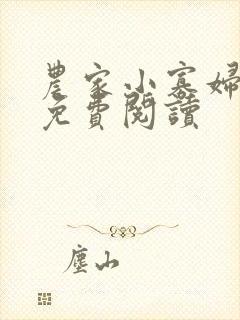 農家小寡婦
免費閱讀
塵山